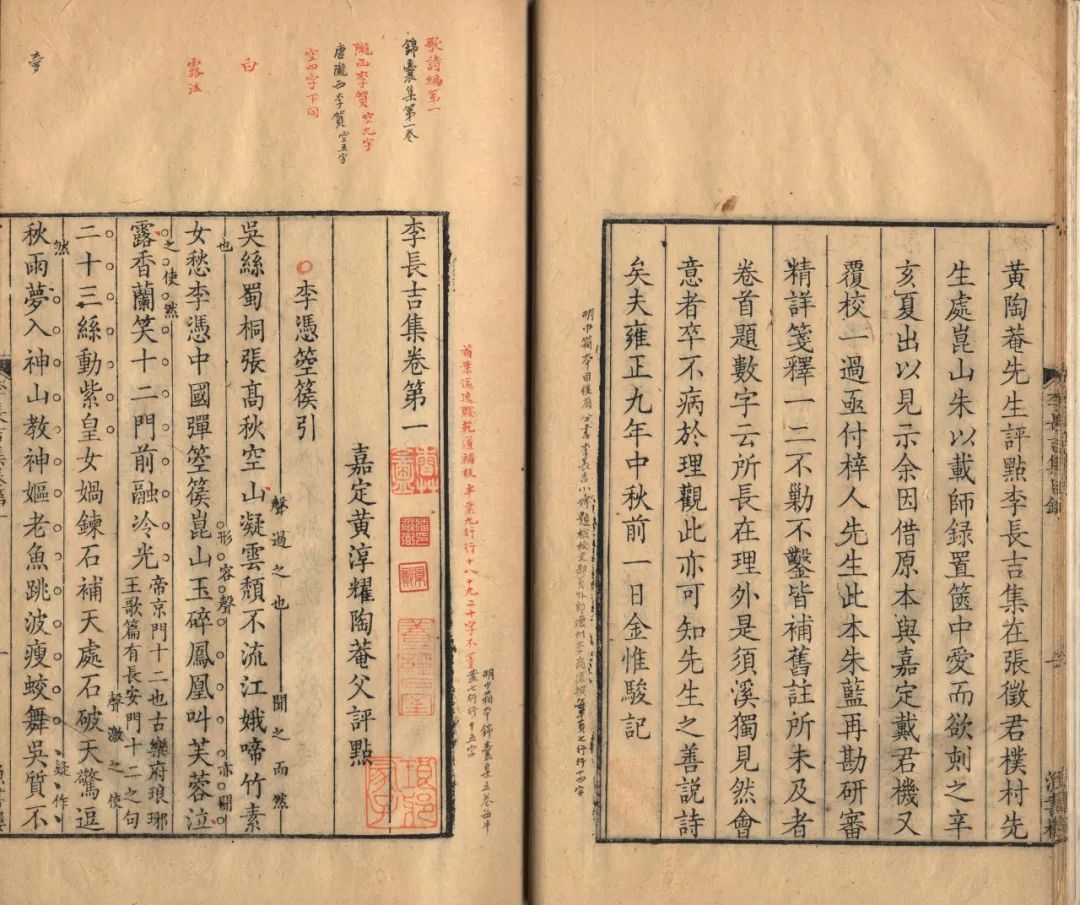 黃陶菴先生評點李長吉集在張徵君樸村先
生處崑山朱以載師録置篋中愛而欲刺之辛
亥夏出以見示余因借原本與嘉定戴君機又
覆校一過亟付梓人先生此本朱藍再勘研審
精詳箋釋一二不勦不鑿皆補舊註所未及者
卷首題數字云所長在理外是須溪獨見然會
意者卒不病於理觀此亦可知先生之善説詩
矣夫雍正九年中秋前一日金惟駿記
歌詩編第一
錦囊集第一卷
隴西李賀空九字
唐隴西李賀空五字
空四字下同
白
露泣
夢
李長吉集卷第一
嘉定黃淳耀陶菴父評點
李憑箜篌引
吳絲蜀桐張髙秋空山凝雲頹不流江娥啼竹素
聲過之也
聞之而然
也
女愁李憑中國彈箜篌崑山玉碎鳳凰叫芙蓉泣
形容聲
亦闢
之使然
露香蘭笑十二門前融冷光帝京門十二也古樂府琅琊
王歌篇有長安門十二之句
聲激之使
二十三絲動紫皇女媧鍊石補天處石破天驚逗
然
疑作
秋雨夢入神山教神嫗老魚跳波瘦蛟舞吳質不